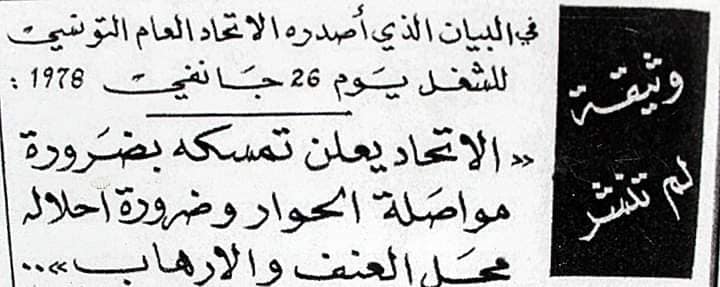 وثيقة
لم تنشر
في البيان الذي أصدره الاتحاد العام التونسي
للشغل يوم 26 جانفي 1978 :
«الاتحاد يعلن تمسكه بضرورة
مواصلة الحوار وضرورة احلاله
محل العنف والارهاب»..